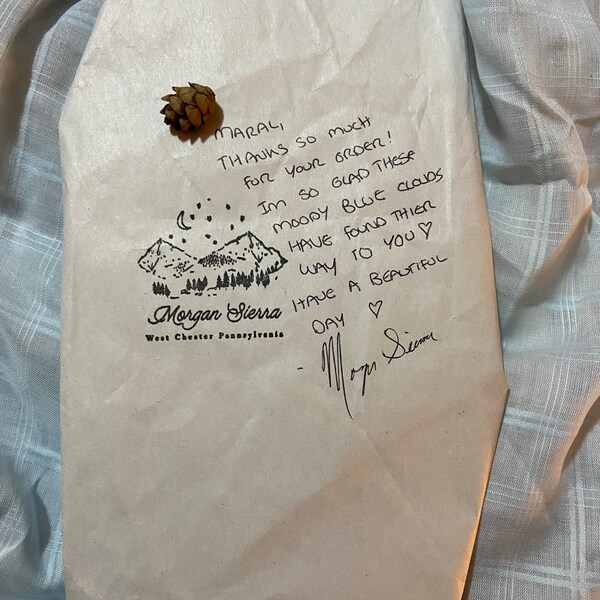 MARAL,
THANKS SO MUCH
FOR YOUR ORDER!
IM SO GLAD THESE
MOODY BLUE CLOUDS
HAVE FOUND THIER
WAY TO YOU ♡
HAVE A BEAUTIFUL
DAY ♡
- Morgan Sierra
Morgan Sierra
West Chester Pennsylvania